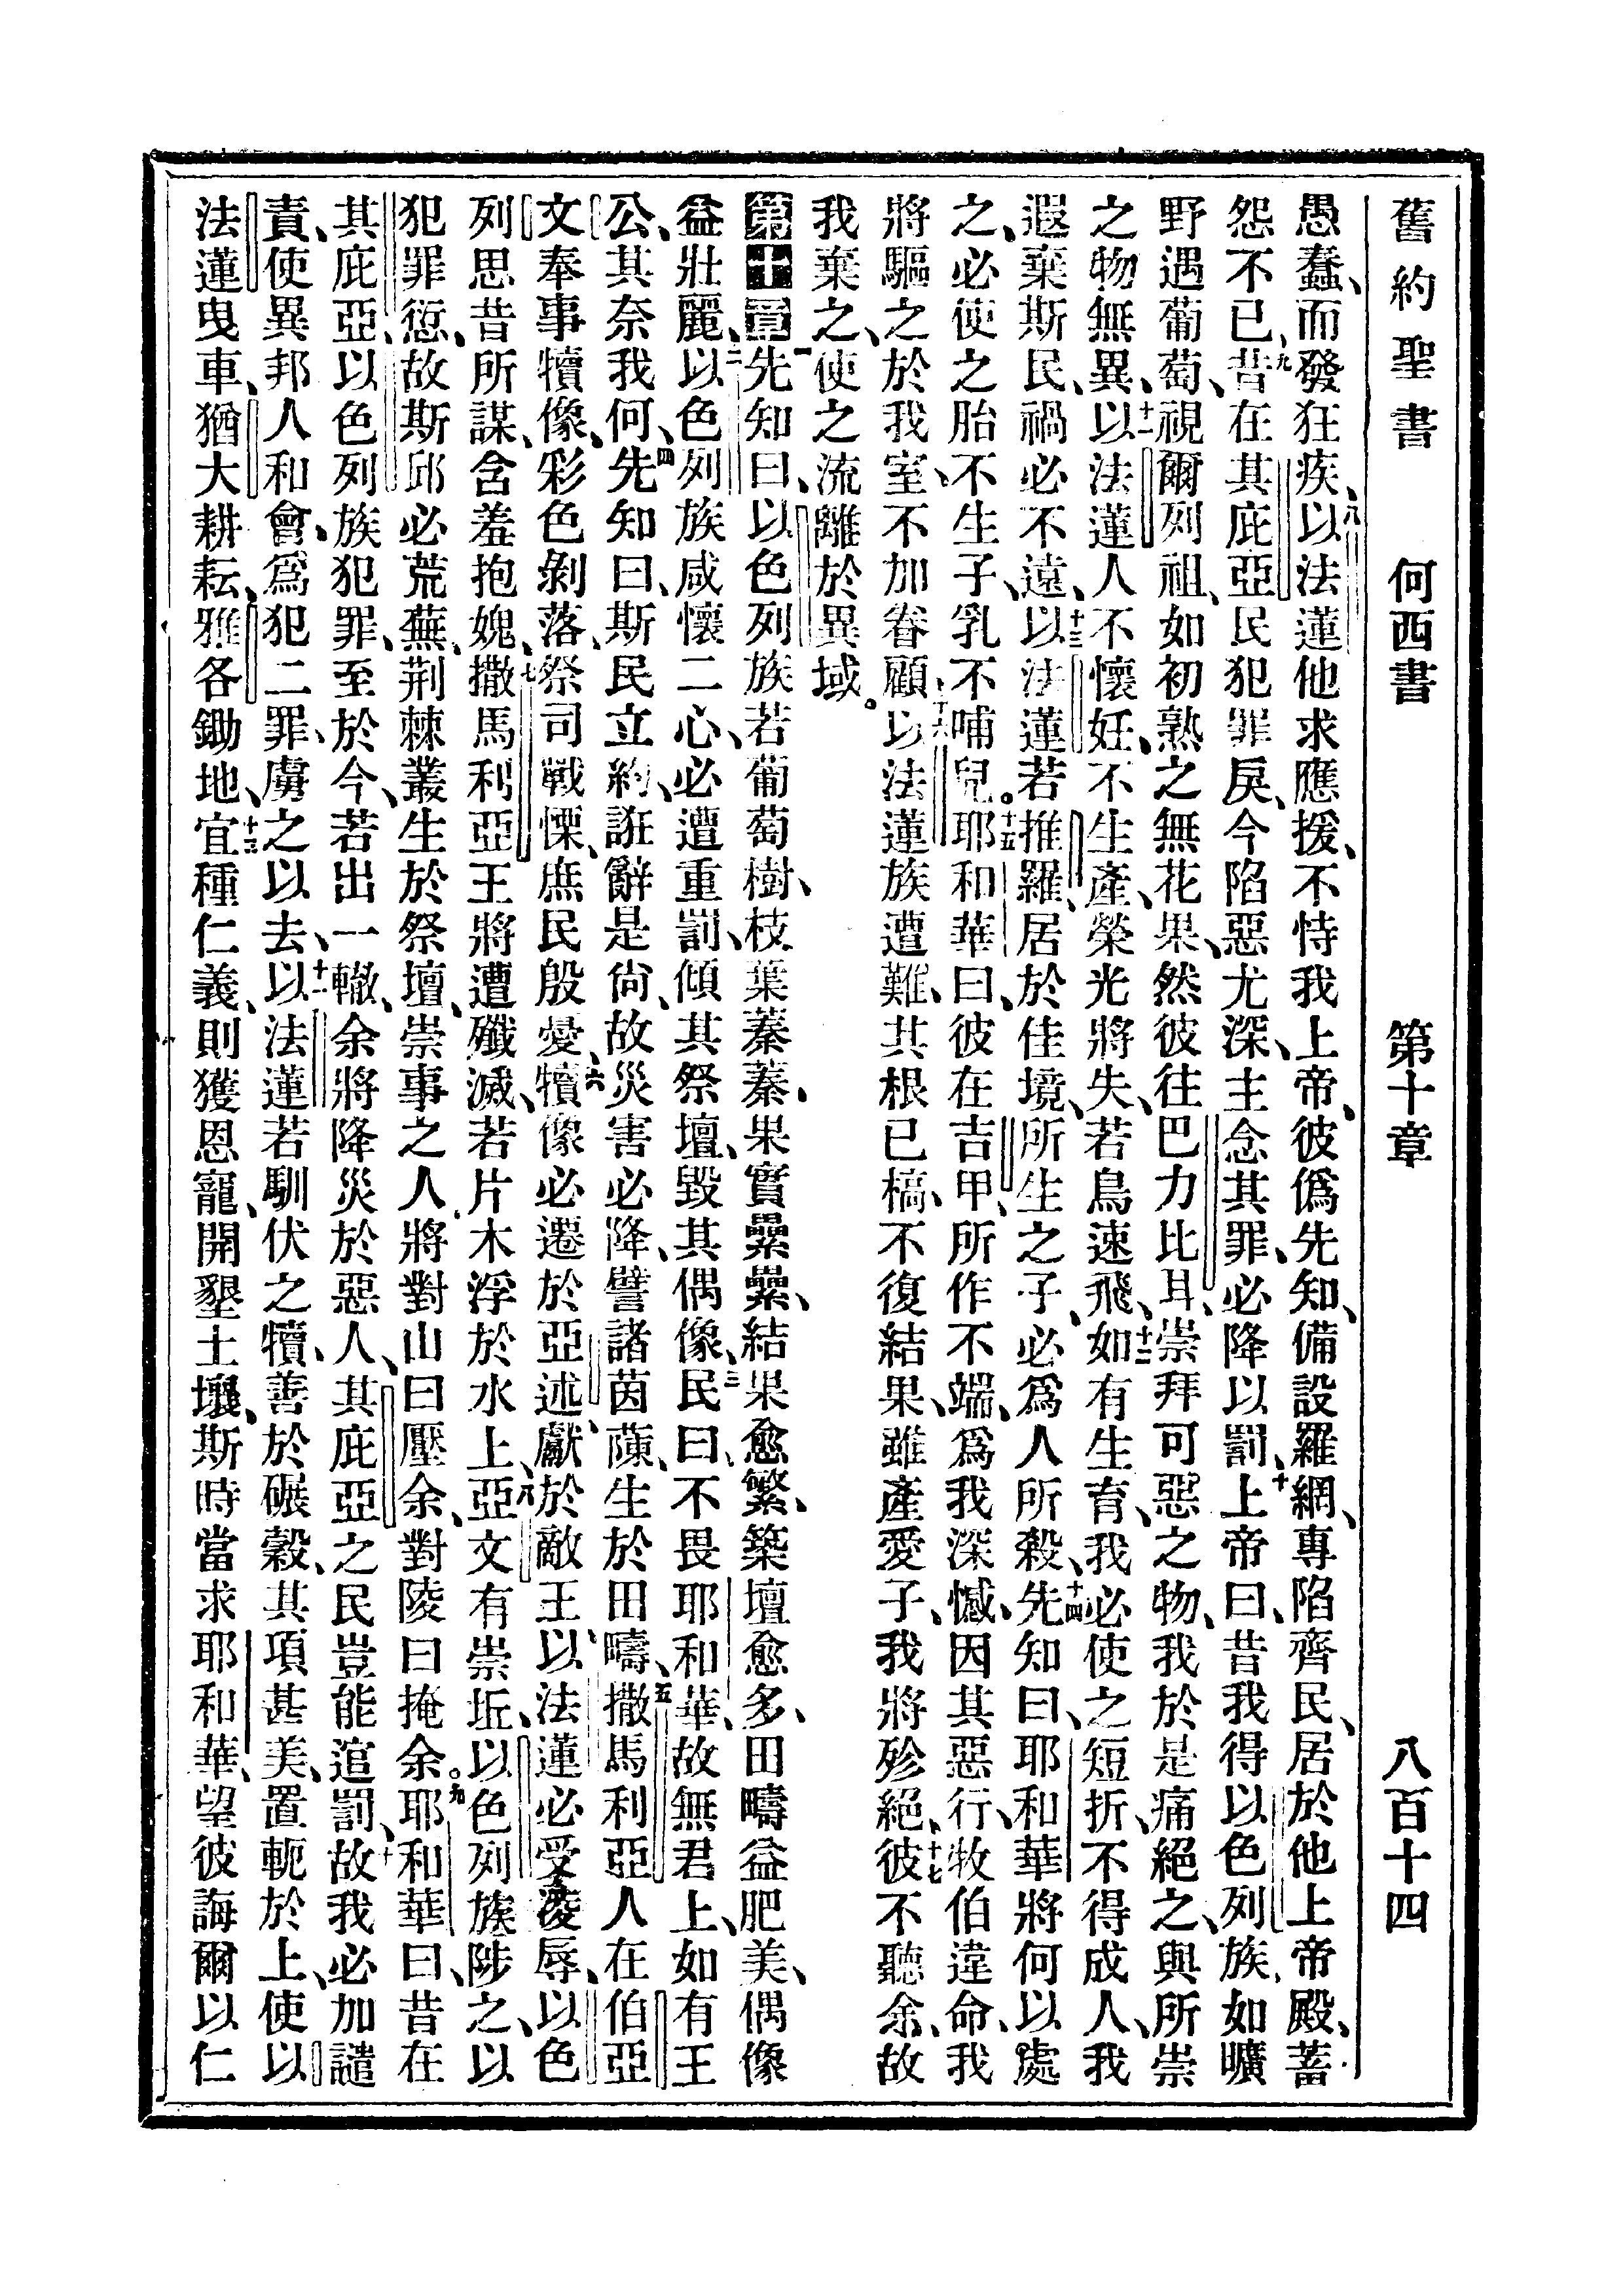 舊約聖書 何西書 第十章 八百十四
愚蠢、而發狂疾、八以法蓮他求應援、不恃我上帝、彼僞先知、備設羅網、專陷齊民、居於他上帝殿、蓄
怨不已、九昔在其庇亞民犯罪戾、今陷惡尤深、主念其罪、必降以罰、十上帝曰、昔我得以色列族、如曠
野遇葡萄、視爾列祖、如初熟之無花果、然彼往巴力比耳、崇拜可惡之物、我於是痛絕之、與所崇
之物無異、十一以法蓮人不懷妊、不生產、榮光將失、若鳥速飛、十二如有生育、我必使之短折、不得成人、我
遐棄斯民、禍必不遠、十三以法蓮若推羅、居於佳境、所生之子、必爲人所殺、十四先知曰、耶和華將何以處
之、必使之胎不生子、乳不哺兒。十五耶和華曰、彼在吉甲、所作不端、爲我深憾、因其惡行、牧伯違命、我
將驅之於我室、不加眷顧、十六以法蓮族遭難、其根已槁、不復結果、雖產愛子、我將殄絕、十七彼不聽余、故
我棄之、使之流離於異域。
第十章一先知曰、以色列族若葡萄樹、枝葉蓁蓁、果實纍纍、結果愈繁、築壇愈多、田疇益肥美、偶像
益壯麗、二以色列族咸懷二心、必遭重罰、傾其祭壇、毀其偶像、三民曰、不畏耶和華、故無君上、如有王
公、其奈我何、四先知曰、斯民立約、誑辭是尙、故災害必降、譬諸茵蔯、生於田疇、五撒馬利亞人在伯亞
文奉事犢像、彩色剝落、祭司戰慄、庶民殷憂、六犢像必遷於亞述、獻於敵王、以法蓮必受凌辱、以色
列思昔所謀、含羞抱媿、七撒馬利亞王將遭殲滅、若片木浮於水上、八亞文有崇坵、以色列族陟之、以
犯罪愆、故斯邱必荒蕪、荆棘叢生於祭壇、崇事之人、將對山曰壓余、對陵曰掩余。九耶和華曰、昔在
其庇亞、以色列族犯罪、至於今、若出一轍、余將降災於惡人、其庇亞之民豈能逭罰、十故我必加譴
責、使異邦人和會、爲犯二罪、虜之以去、十一以法蓮若馴伏之犢、善於碾穀、其項甚美、置軛於上、使以
法蓮曳車、猶大耕耘、雅各鋤地、十二宜種仁義、則獲恩寵、開墾土壤、斯時當求耶和華、望彼誨爾以仁